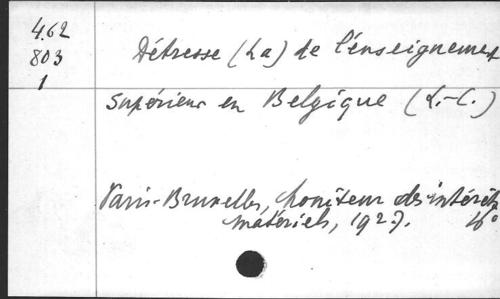 462
803
1
Détresse (La) de l'enseignement
supérieur en Belgique (L.-C.)
Paris-Bruxelles, Moniteur des intérêts
matériels, 1927. 4°